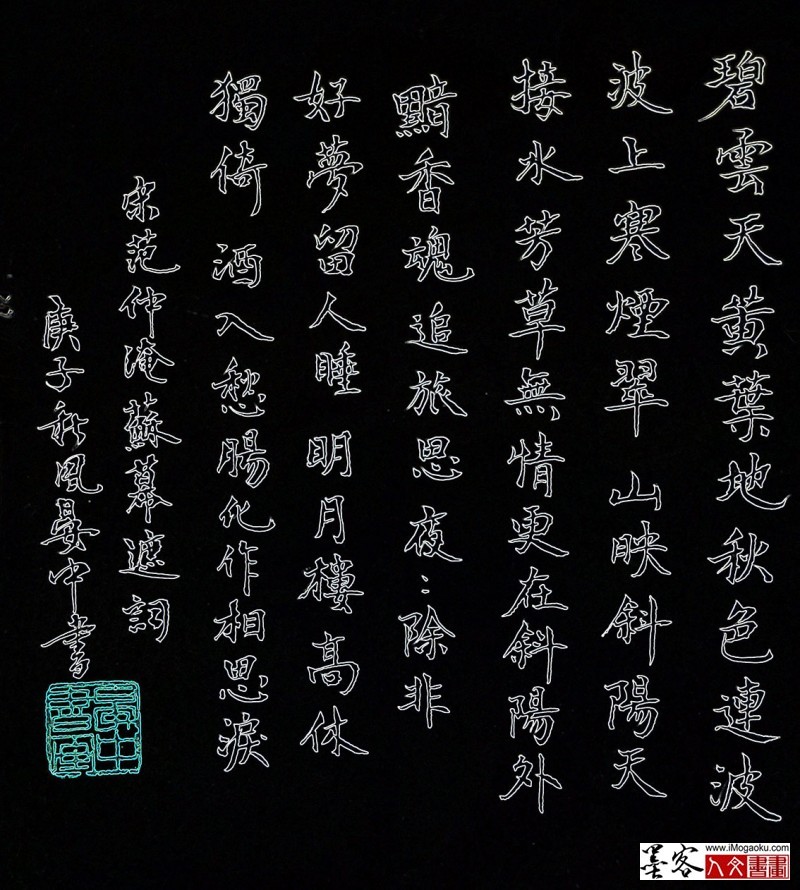 碧雲天黄葉地秋色連波
波上寒煙翠 山映斜陽天
接水芳草無情更在斜陽外
黯香魂追旅思夜〻除非
好夢留人睡 明月樓高休
獨倚 酒入愁腸化作相思淚
宋范仲淹蘇幕遮詞
庚子秋風晏中書
墨客
www.iMogaoku.com
人文書畫